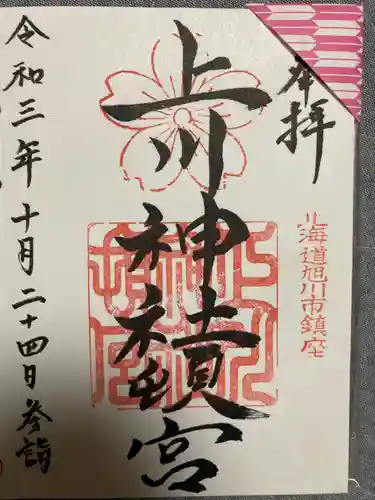 奉拝
北海道旭川市鎮座
上川神社
頓宮
令和三年十月二十四日参詣